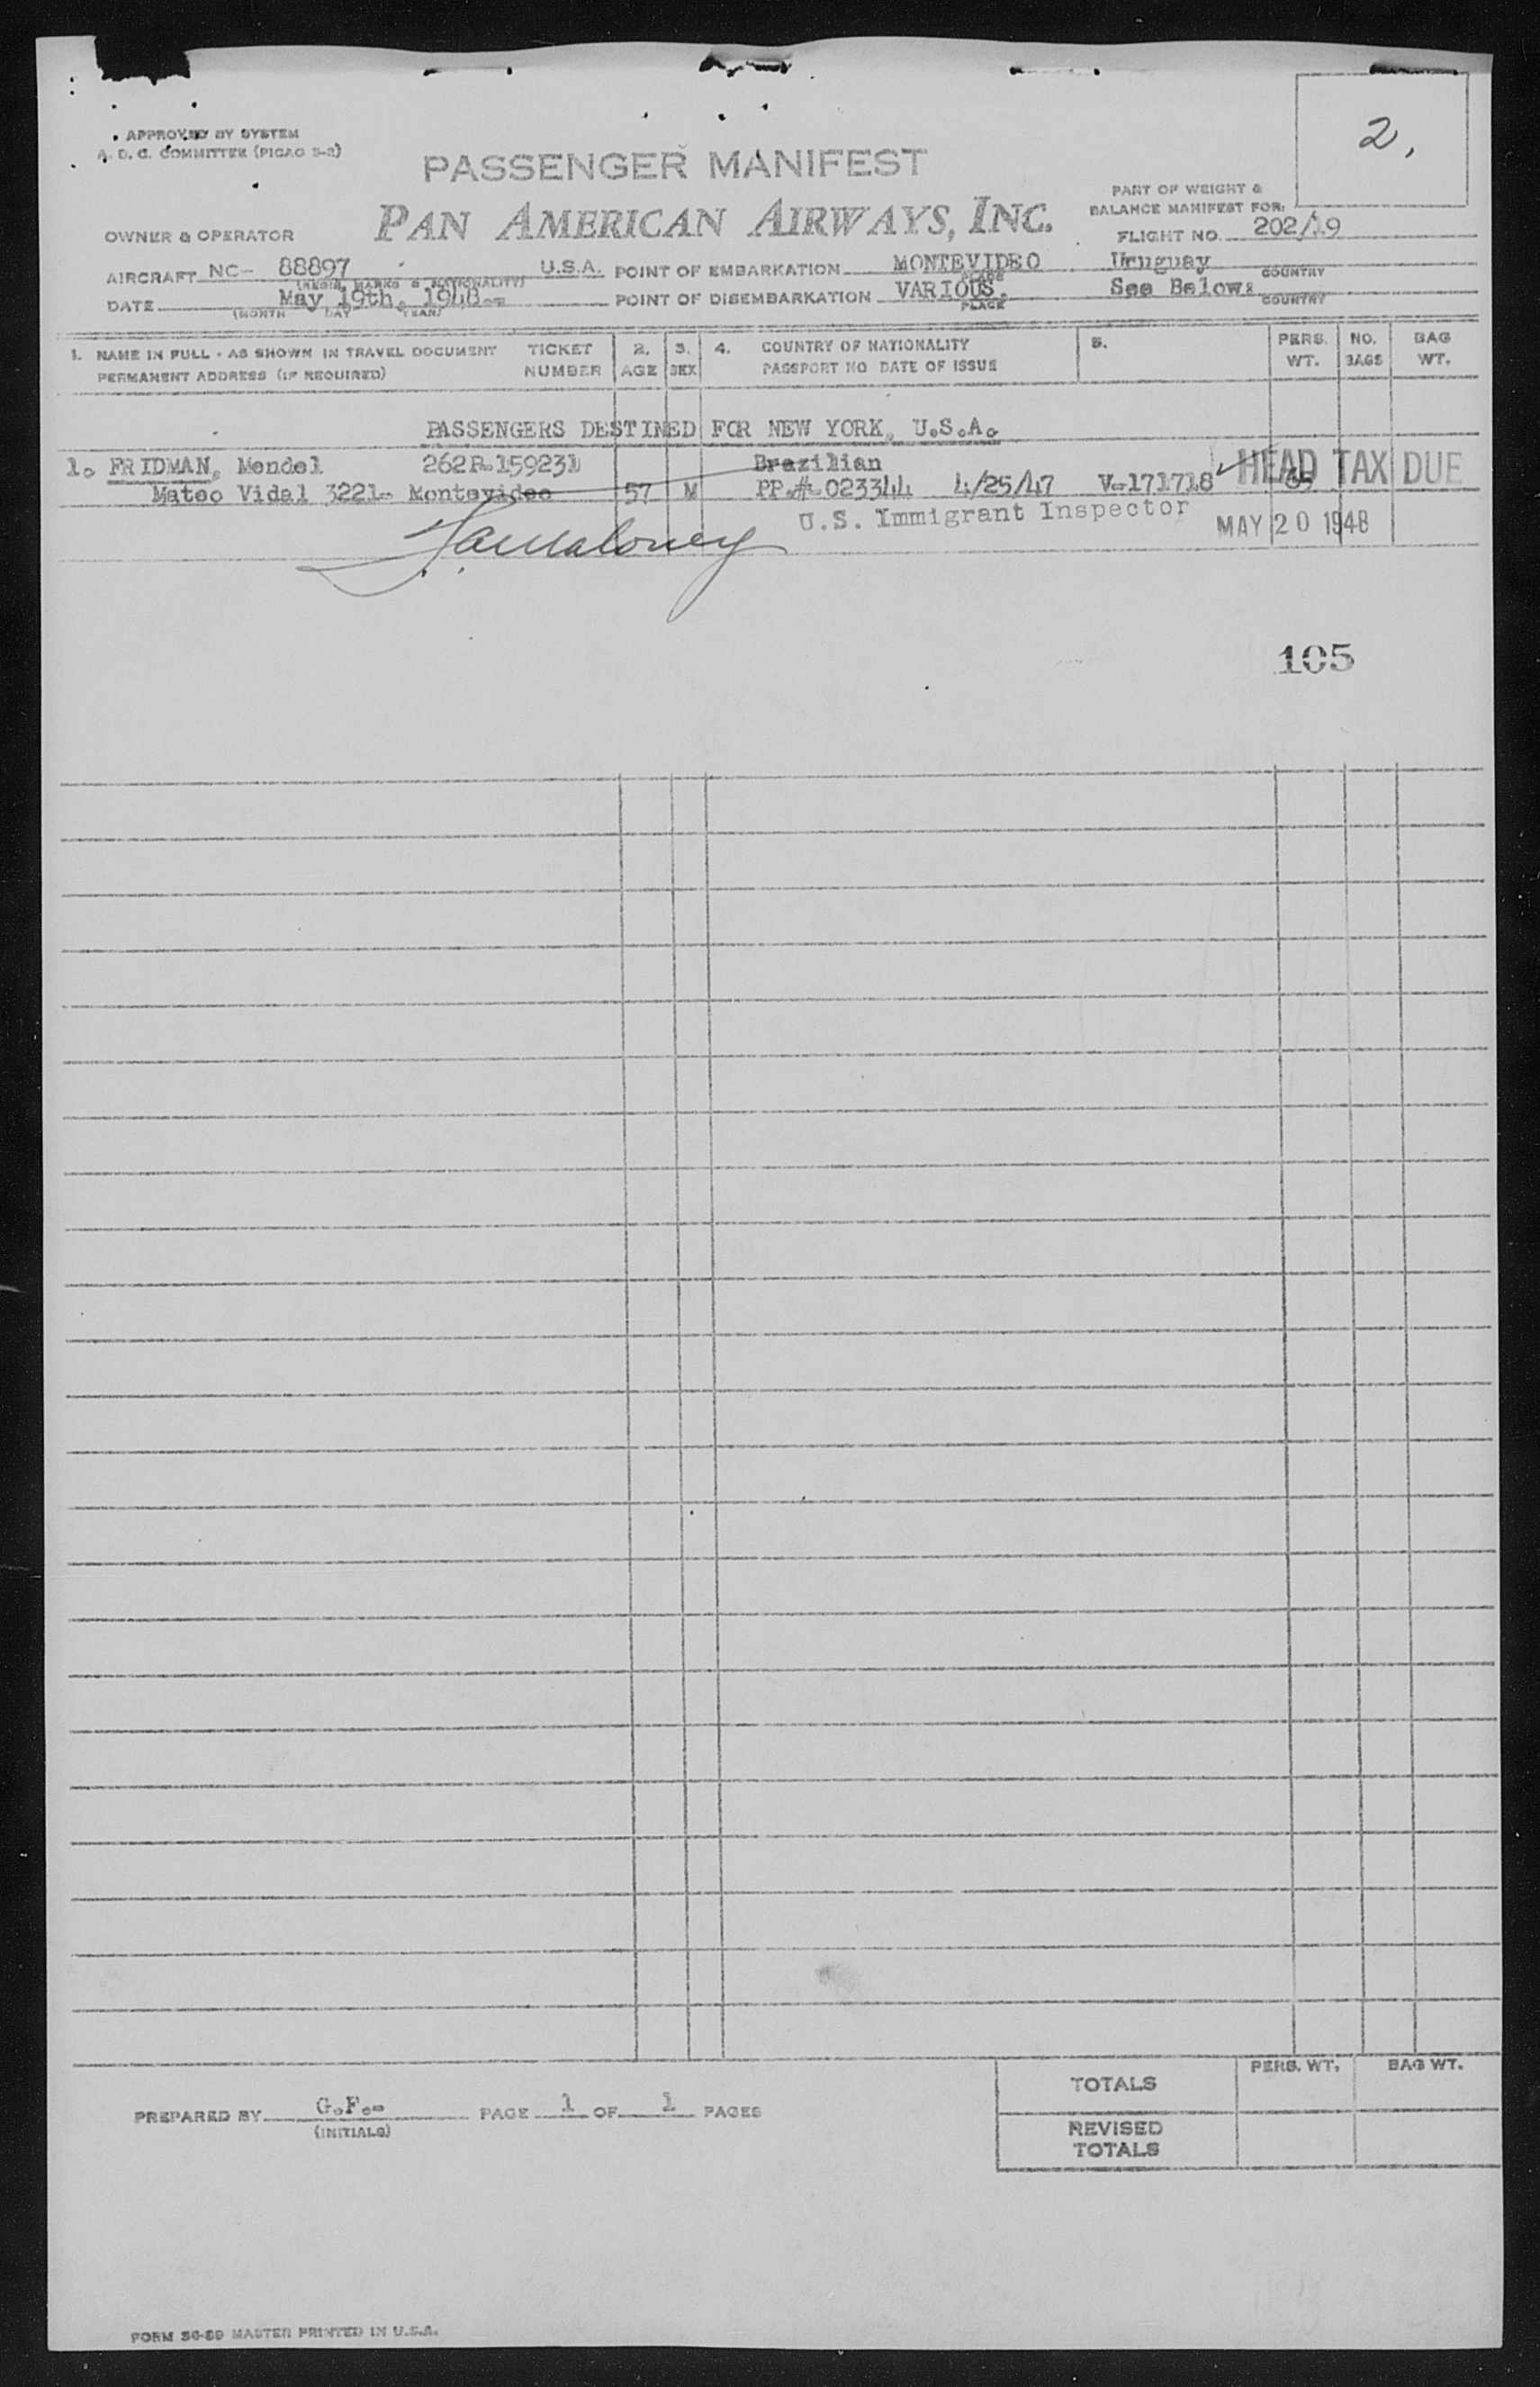 2,
APPROVED BY SYSTEM
A. D. C. COMMITTEE (PICAO S-2)
PASSENGER MANIFEST
PART OF WEIGHT &
BALANCE MANIFEST FOR:
OWNER & OPERATOR PAN AMERICAN AIRWAYS, INC.
FLIGHT NO. 202/19
AIRCRAFT NC- 88897 U.S.A. POINT OF EMBARKATION MONTEVIDEO Uruguay
(REGIS. MARKS & NATIONALITY) PLACE COUNTRY
DATE May 19th, 1948.- POINT OF DISEMBARKATION VARIOUS. See Below:
(MONTH DAY YEAR) PLACE COUNTRY
1. NAME IN FULL - AS SHOWN IN TRAVEL DOCUMENT TICKET 2. 3. 4. COUNTRY OF NATIONALITY 5. PERS. NO. BAG
PERMANENT ADDRESS (IF REQUIRED) NUMBER AGE SEX PASSPORT NO DATE OF ISSUE WT. BAGS WT.
PASSENGERS DESTINED FOR NEW YORK, U.S.A.
1. FRIDMAN, Mendel 262R-159231 Brazilian HEAD TAX DUE
Mateo Vidal 3221- Montevideo 57 M PP.#-023344 4/25/47 V-171718
U.S. Immigrant Inspector MAY 20 1948
105
TOTALS PERS. WT. BAG WT.
PREPARED BY G.F.- PAGE 1 OF 1 PAGES
(INITIALS)
REVISED
TOTALS
FORM 36-89 MASTER PRINTED IN U.S.A.